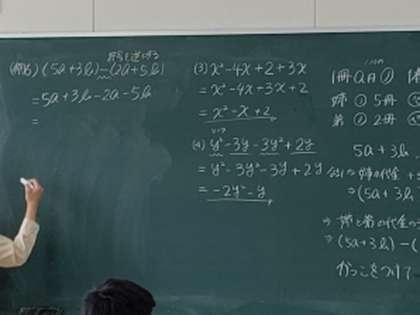 (例6) (5a+3b)-(2a+5b)
=5a+3b-2a-5b
=
(3) x²-4x+2+3x
=x²-4x+3x+2
=x²-x+2
(4) y²-3y-3y²+2y
=y²-3y²-3y+2y
=-2y²-y
1冊a円
姉 5冊
弟 2冊
5a+3b
⇒(5a+3b
⇒(5a+3b)-(
かっこをつけて